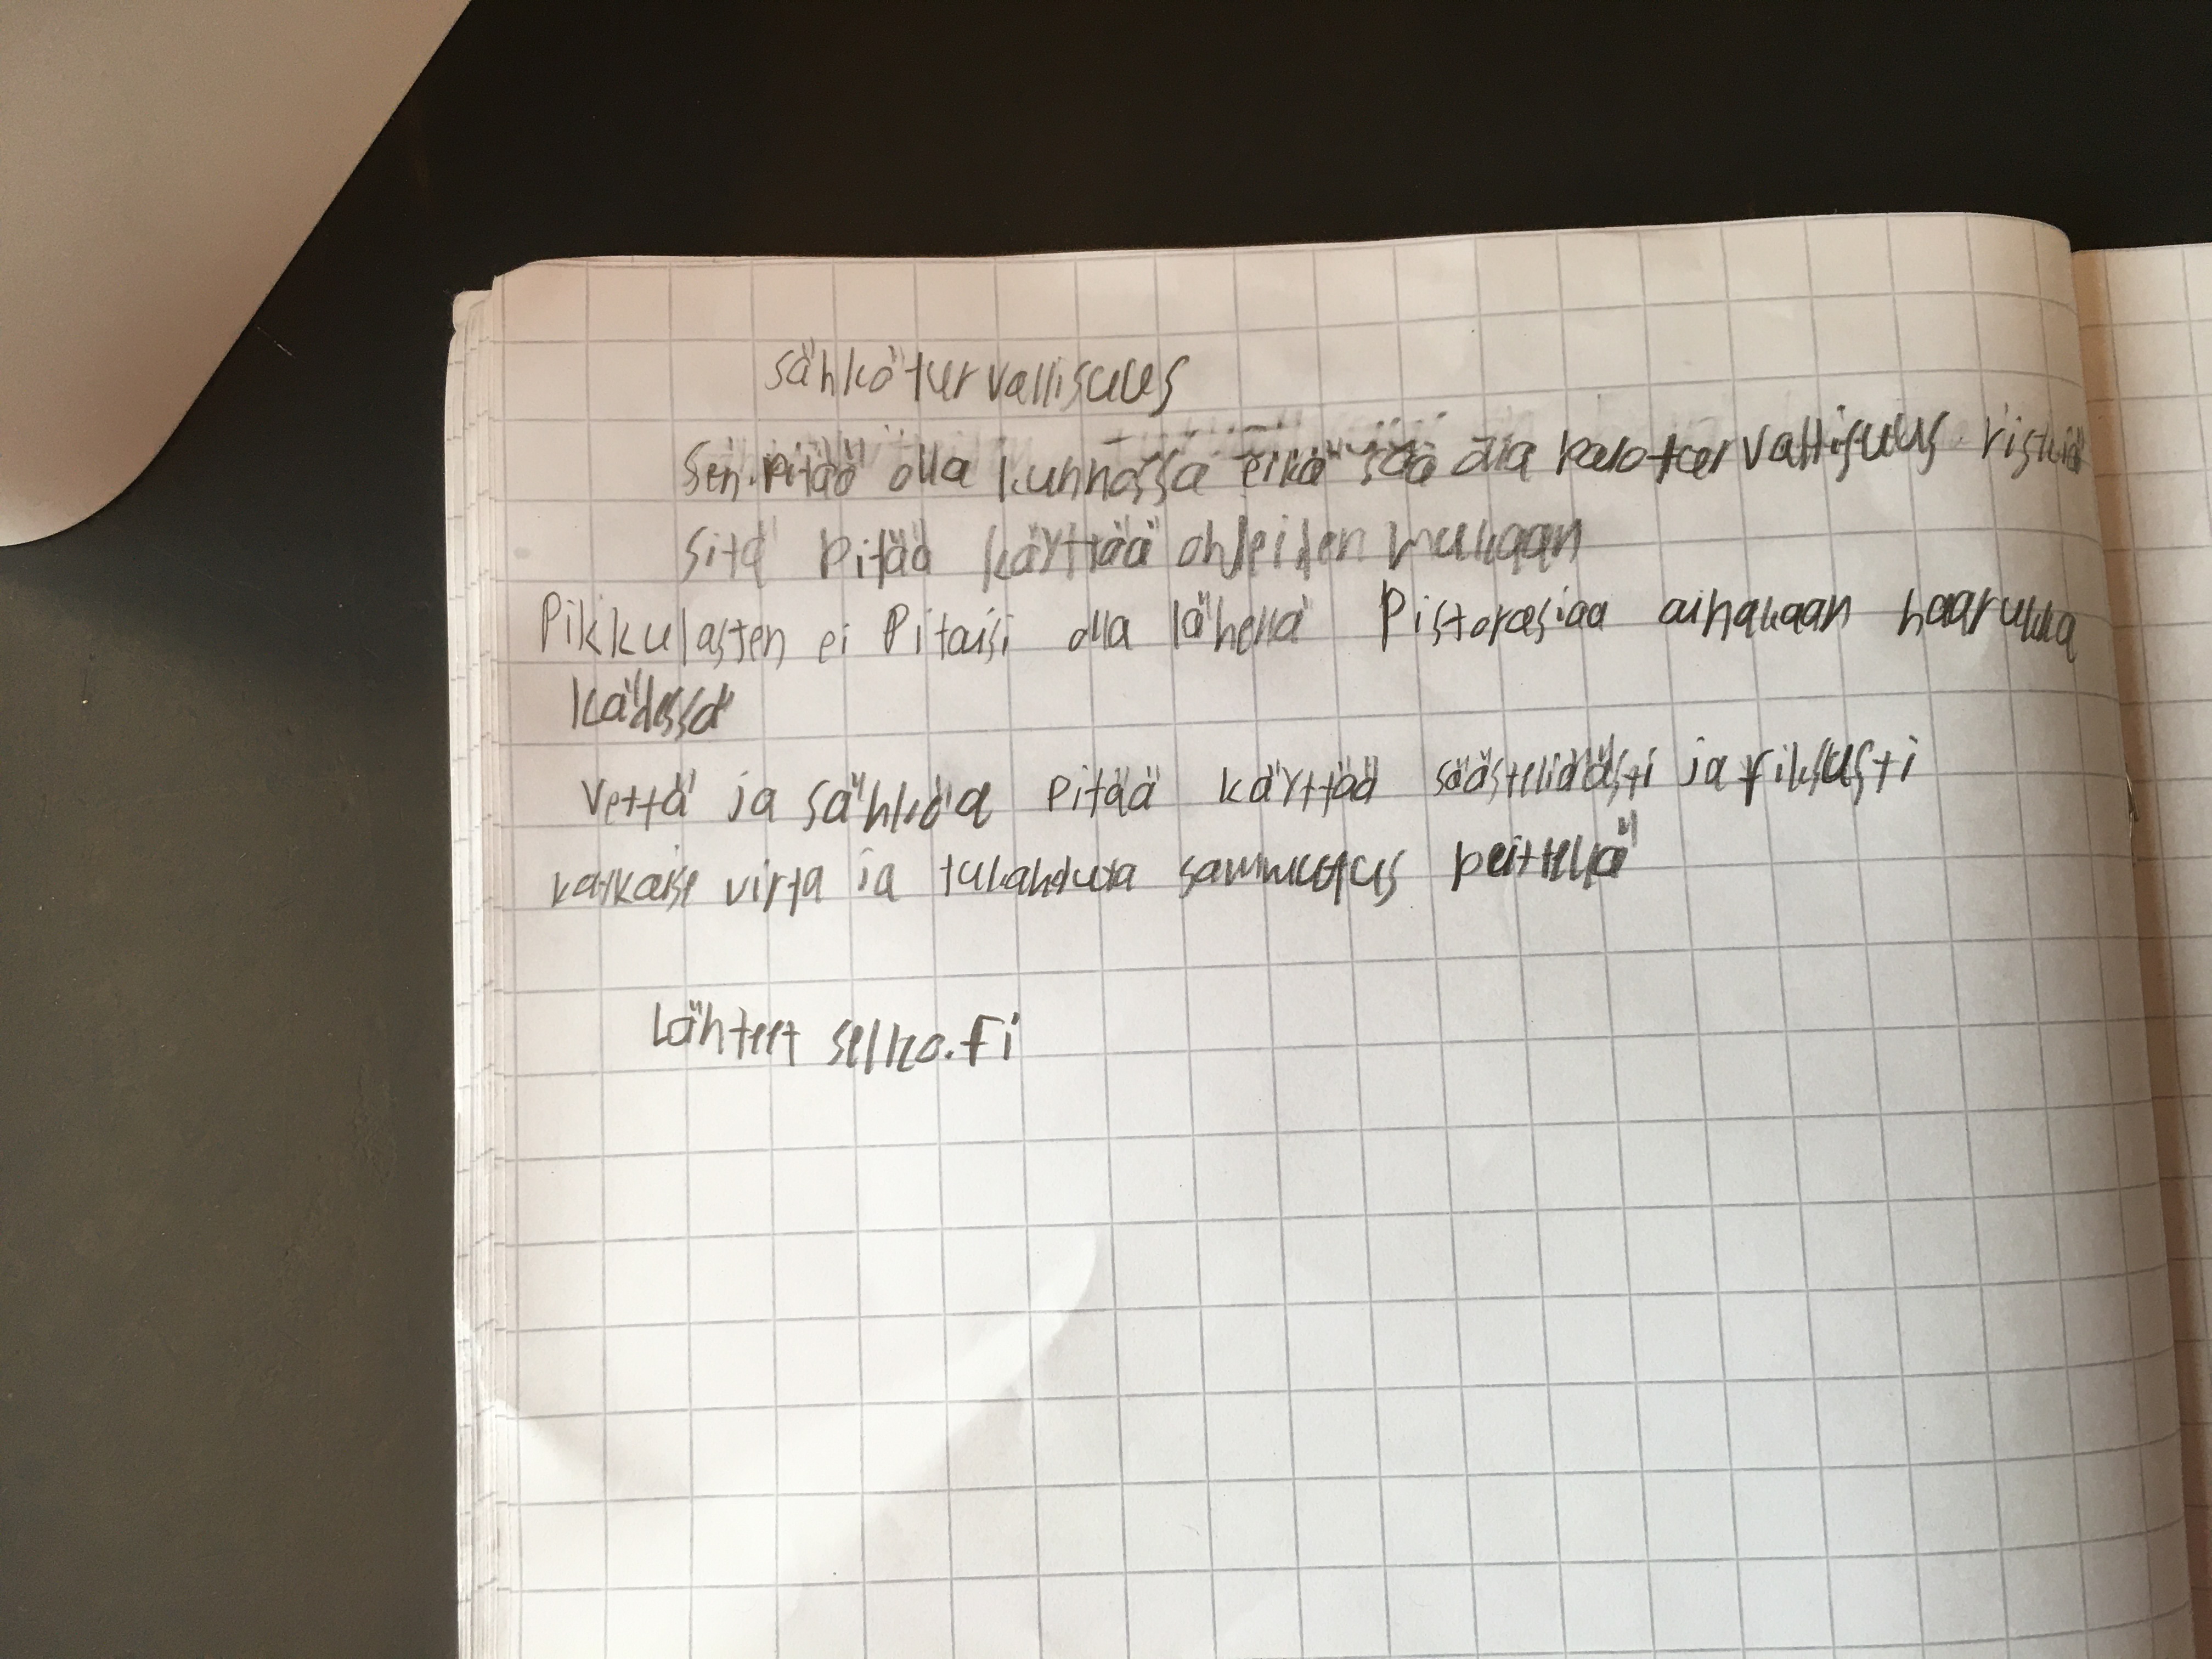 sähköturvallisuus
Sen pitää olla kunnossa eikä saa olla paloturvallisuus riskiä
Sitä pitää käyttää ohjeiden mukaan
Pikkulasten ei Pitäisi olla lähellä Pistorasiaa ainakaan haarukka
kädessä
Vettä ja sähköä Pitää käyttää säästeliäästi ja fiksusti
katkaise virta ja tukahduta sammutus peittellä
Lähteet selko.fi